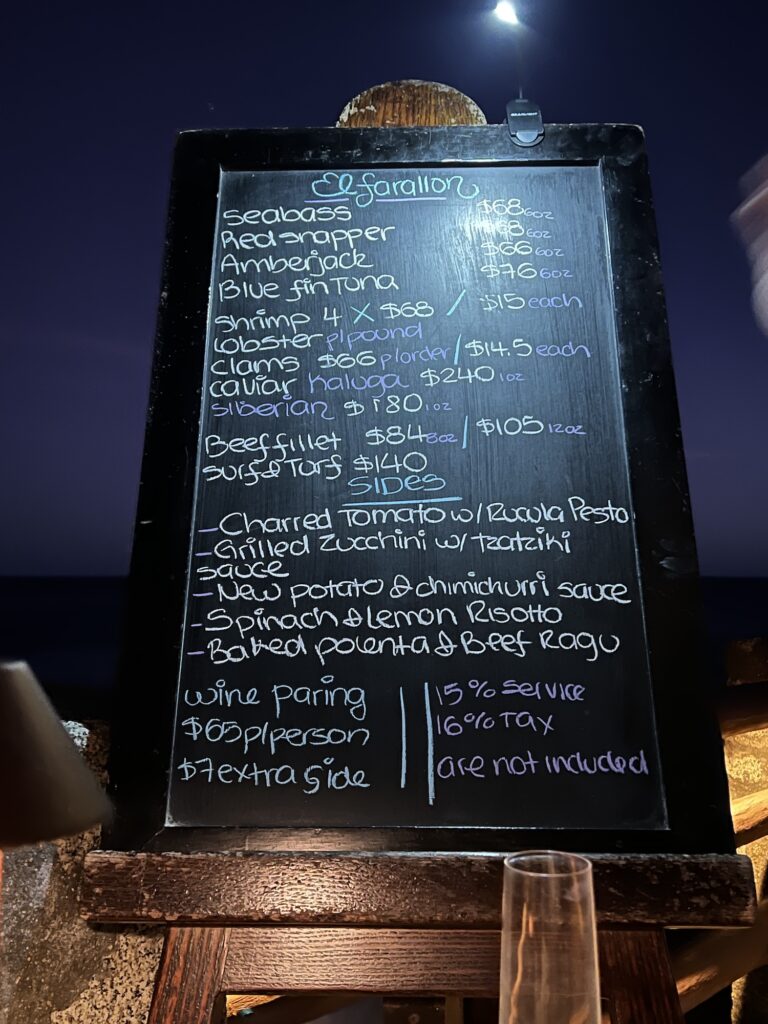 El farallon
Seabass $68 6oz
Red snapper $68 6oz
Amberjack $66 6oz
Blue fin Tuna $76 6oz
Shrimp 4 X $68 / $15 each
lobster p/pound
Clams $66 p/order / $14.5 each
caviar Kaluga $240 1oz
Siberian $180 1oz
Beef fillet $84 8oz / $105 12oz
Surf & Turf $140
SIDES
- Charred Tomato w/ Rucula Pesto
- Grilled Zucchini w/ tzatziki
sauce
- New potato & chimichurri sauce
- Spinach & Lemon Risotto
- Baked polenta & Beef Ragu
wine paring
$65 p/person
$7 extra side
15% service
16% Tax
are not included